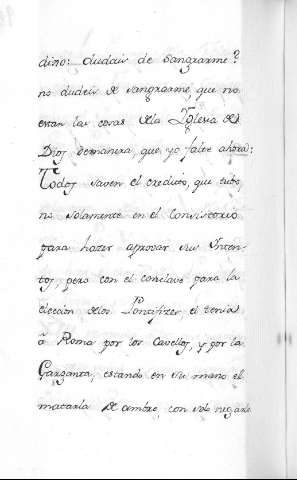 dixo: dudais de sangrarme?
no dudeis de sangrarme, que no
estan las cosas dela Iglesia de
Dios demanera, que yo falte ahora:
Todos saven el credito, que tubo,
no solamente en el Consistorio
para hazer aprovar sus Inten-
tos, pero con el conclave para la
eleccion delos Pontifizes el tenia
à Roma por los Cavellos, y por la
Garganta, estando en su mano el
matarla de ambre, con solo negarle